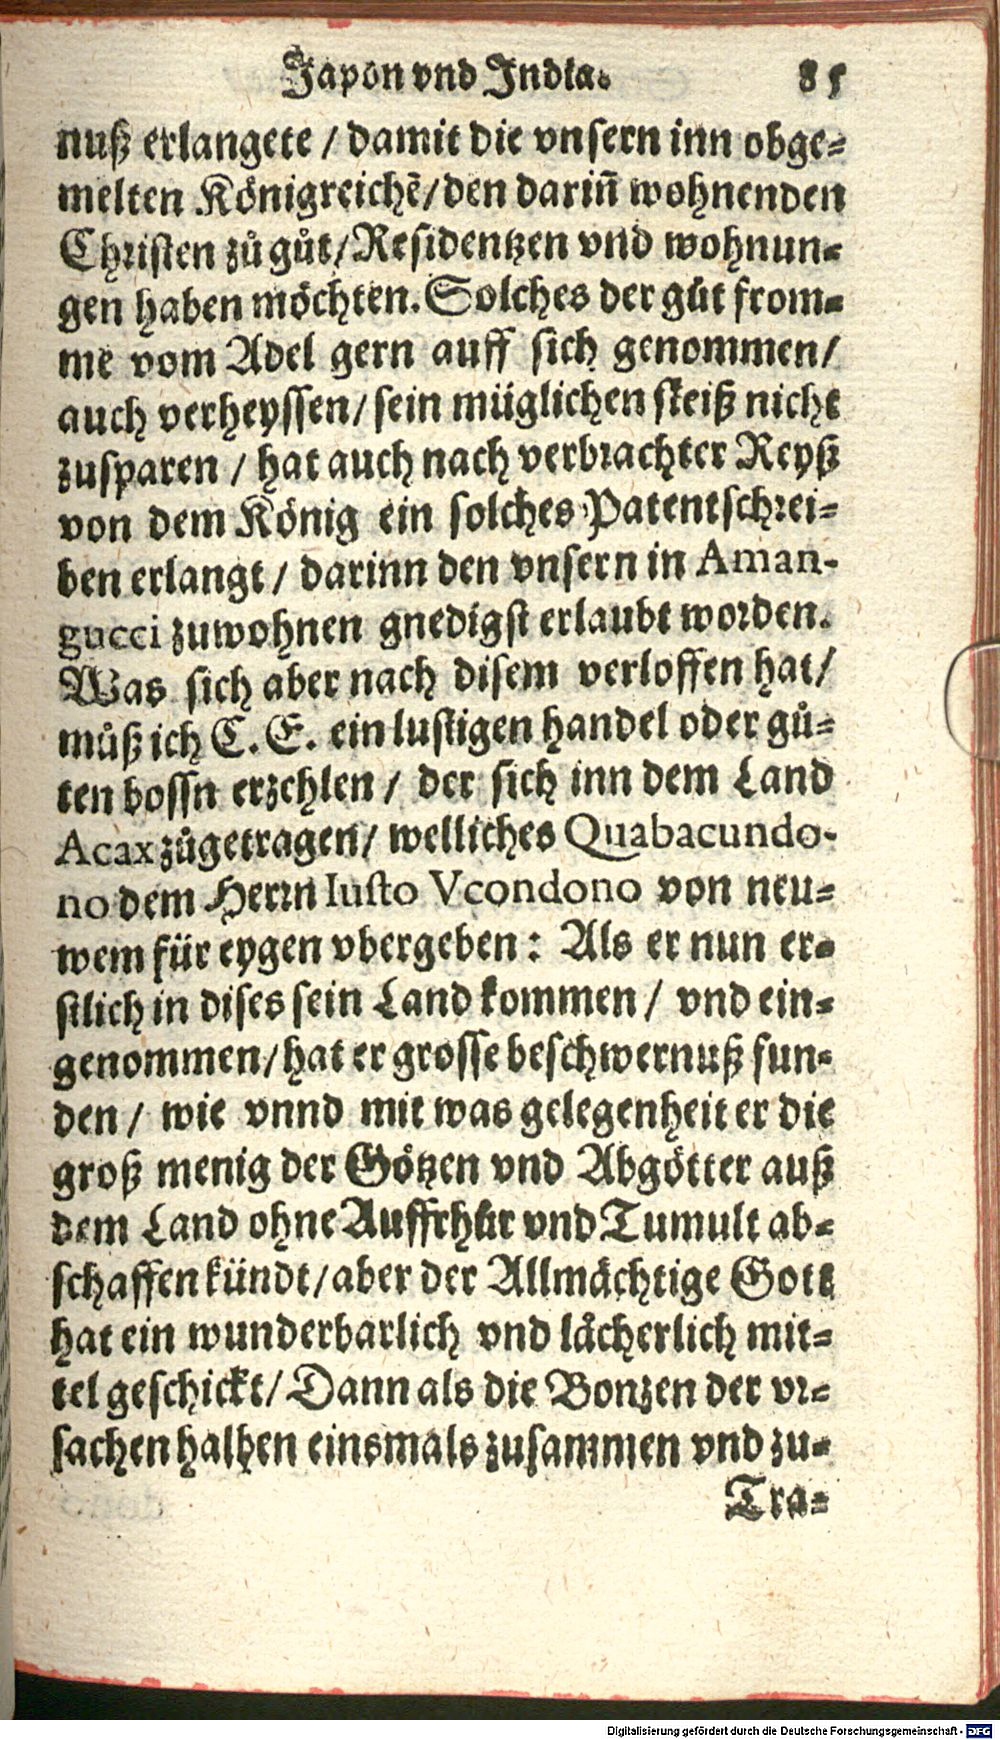 Japon vnd India. 85
nuß erlangete / damit die vnsern inn obge-
melten Königreichẽ/den dariñ wohnenden
Christen zů gůt/Residentzen vnd wohnun-
gen haben möchten. Solches der gůt from-
me vom Adel gern auff sich genommen/
auch verheyssen/ sein müglichen fleiß nicht
zusparen / hat auch nach verbrachter Reyß
von dem König ein solches Patentschrei-
ben erlangt / darinn den vnsern in Aman-
gucci zuwohnen gnedigst erlaubt worden.
Was sich aber nach disem verloffen hat/
můß ich C. E. ein lustigen handel oder gů-
ten bossn erzehlen / der sich inn dem Land
Acax zůgetragen/ welliches Quabacundo-
no dem Herrn Iusto Vcondono von neu-
wem für eygen vbergeben: Als er nun er-
stlich in dises sein Land kommen / vnd ein-
genommen/hat er grosse beschwernuß fun-
den / wie vnnd mit was gelegenheit er die
groß menig der Götzen vnd Abgötter auß
dem Land ohne Auffrhůr vnd Tumult ab-
schaffen kündt/aber der Allmächtige Gott
hat ein wunderbarlich vnd lächerlich mit-
tel geschickt/Dann als die Bonzen der vr-
sachen halben einsmals zusammen vnd zu-
Tra-
Digitalisierung gefördert durch die Deutsche Forschungsgemeinschaft - DFG